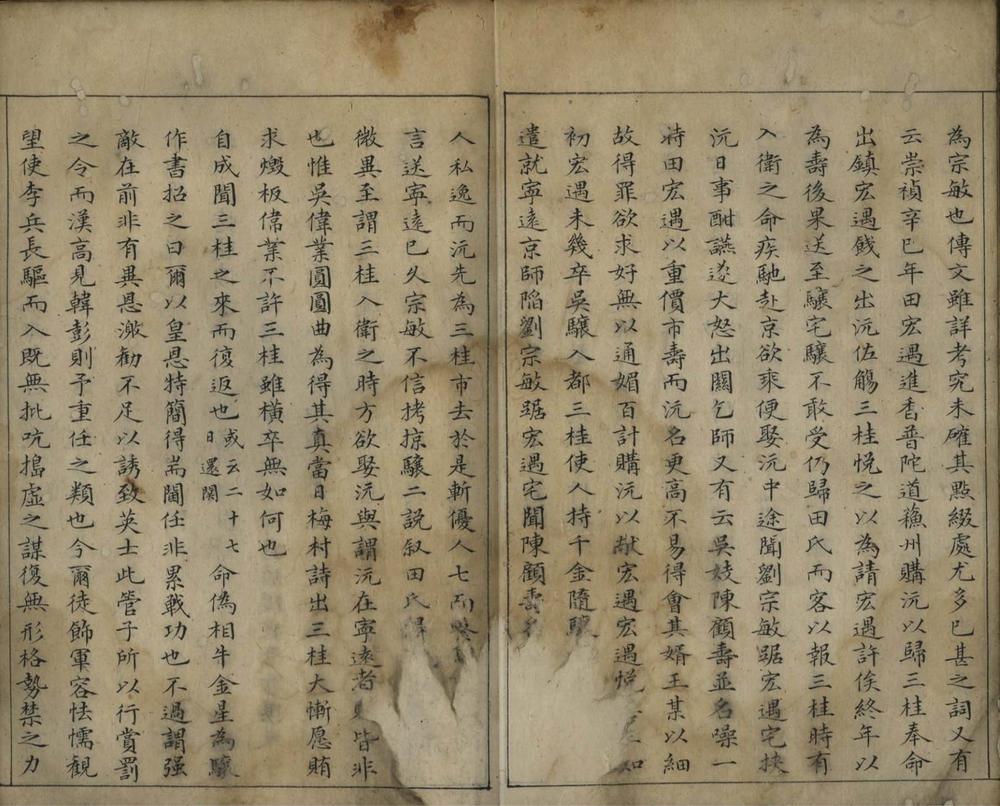 為宗敏也傳文雖詳考究未確其點綴處尤多已甚之詞又有
云崇禎辛巳年田宏遇進香普陀道蘓州購沅以歸三桂奉命
出鎮宏遇餞之出沅佐觴三桂悅之以為請宏遇許俟終年以
為壽後果送至驤宅驤不敢受仍歸田氏而客以報三桂時有
入衛之命疾馳赴京欲乘便娶沅中途聞劉宗敏踞宏遇宅挾
沅日事酣讌遂大怒出關乞師又有云吳妓陳顧壽並名噪一
時田宏遇以重價市壽而沅名更高不易得會其婿王某以細
故得罪欲求好無以通媚百計購沅以献宏遇宏遇悅
初宏遇未幾卒吳驤入都三桂使人持千金隨驤
遣就寧遠京師陷劉宗敏踞宏遇宅聞陳顧壽名
人私逸而沅先為三桂市去於是斬優人七而
言送寧遠已久宗敏不信拷掠驤二說叙田氏
微異至謂三桂入衛之時方欲娶沅與謂沅在寧遠者皆非
也惟吳偉業圓圓曲為得其真當日梅村詩出三桂大慚愿賄
求燬板偉業不許三桂雖橫卒無如何也
自成聞三桂之來而復返也或云二十七日還關命偽相牛金星為驤
作書招之曰爾以皇恩特簡得耑閫任非累戰功也不過謂强
敵在前非有異恩激勸不足以誘致英士此管子所以行賞罰
之令而漢高見韓彭則予重任之類也今爾徒飾軍容怯懦觀
望使李兵長驅而入既無批吭搗虛之謀復無形格勢禁之力